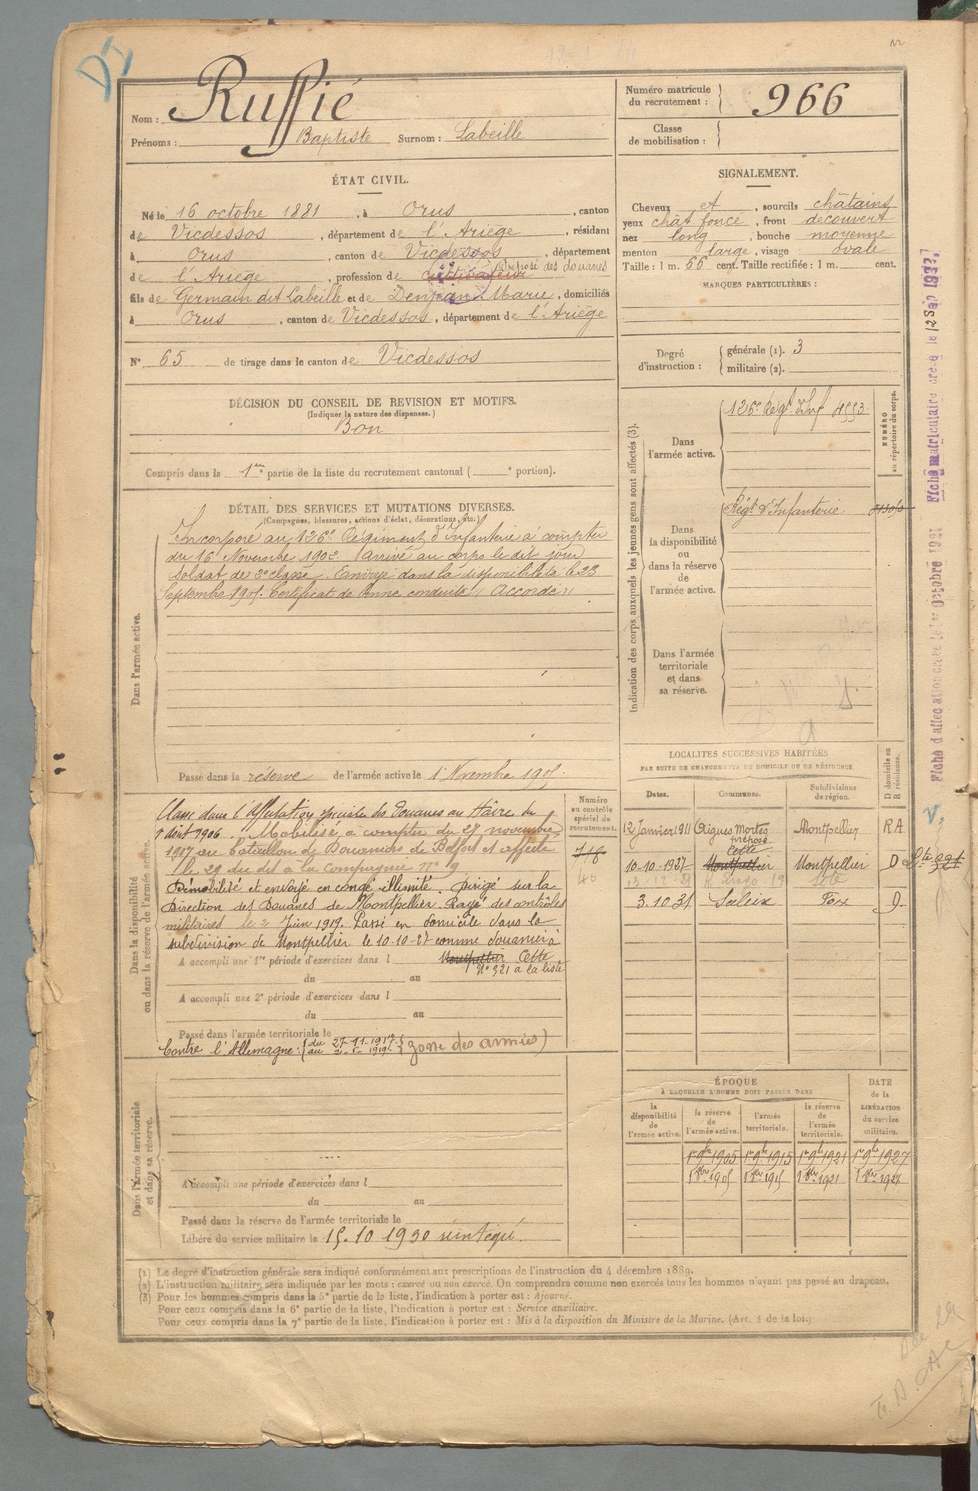 D
Nom : Ruffié
Prénoms : Baptiste Surnom : Labeille
Numéro matricule du recrutement : 966
Classe de mobilisation :
ÉTAT CIVIL.
Né le 16 octobre 1881, à Orus, canton
de Vicdessos, département de l'Ariège, résidant
à Orus, canton de Vicdessos, département
de l'Ariège, profession de cultivateur Préposé des douanes
fils de Germain dit Labeille et de Marie, domiciliés
à Orus, canton de Vicdessos, département de l'Ariège
N° 65 de tirage dans le canton de Vicdessos
SIGNALEMENT.
Cheveux et, sourcils châtains
yeux chât foncé, front découvert
nez long, bouche moyenne
menton large, visage ovale
Taille : 1 m. 66 cent. Taille rectifiée : 1 m. cent.
MARQUES PARTICULIÈRES :
Degré d'instruction : générale (1). 3
militaire (2).
DÉCISION DU CONSEIL DE REVISION ET MOTIFS.
(Indiquer la nature des dispenses.)
Bon
Compris dans la 1ère partie de la liste du recrutement cantonal ( e portion).
DÉTAIL DES SERVICES ET MUTATIONS DIVERSES.
(Campagnes, blessures, actions d'éclat, décorations, etc.)
Dans l'armée active.
Incorporé au 126e Régiment d'Infanterie à compter
du 16 Novembre 1902. Arrivé au corps le dit jour
Soldat de 2e classe. Envoyé dans la disponibilité le 23
Septembre 1905. Certificat de bonne conduite " Accordé "
Passé dans la réserve de l'armée active le 1er Novembre 1905.
Indication des corps auxquels les jeunes gens sont affectés (3).
Dans l'armée active.
126e Régt d'Inf
NUMÉRO au répertoire du corps.
Dans la disponibilité ou dans la réserve de l'armée active.
Régt d'Infanterie
Dans l'armée territoriale et dans sa réserve.
Dans la disponibilité ou dans la réserve de l'armée active.
Classé dans l'Affectation spéciale des Douanes au Hâvre du
Août 1906. Mobilisé à compter du 27 novembre
1917 au bataillon de Douaniers de Belfort et affecté
le 29 du dit à la Compagnie n° 9
Démobilisé et envoyé en congé illimité. Dirigé sur la
Direction des Douanes de Montpellier. Rayé des contrôles
militaires le 2 Juin 1919. Passé en domicile dans la
subdivision de Montpellier le 10-10-27 comme douanier à
A accompli une 1re période d'exercices dans l Montpellier Cette
N° 321 à la liste
du au
A accompli une 2e période d'exercices dans l
du au
Passé dans l'armée territoriale le
Contre l'Allemagne : du 27-11-1917 au 1919 (zone des armées)
Numéro au contrôle spécial du recrutement.
LOCALITÉS SUCCESSIVES HABITÉES
PAR SUITE DE CHANGEMENTS DE DOMICILE OU DE RÉSIDENCE
Dates. Communes. Subdivisions de région. D domicile ou R résidence.
12 Janvier 1911 Aigues Mortes préposé Montpellier R A
10-10-1927 Montpellier Cette Montpellier D
3.10.31 Saleix Foix D.
ÉPOQUE
À LAQUELLE L'HOMME DOIT PASSER DANS
la disponibilité de l'armée active. la réserve de l'armée active. l'armée territoriale. la réserve de l'armée territoriale.
DATE de la LIBÉRATION du service militaire.
1er 9bre 1905 1er 9bre 1915 1er 9bre 1921 1er 9bre 1927
Dans l'armée territoriale et dans sa réserve.
A accompli une période d'exercices dans l
du au
Passé dans la réserve de l'armée territoriale le
Libéré du service militaire le 15.10 1930 réintégré.
(1) Le degré d'instruction générale sera indiqué conformément aux prescriptions de l'instruction du 4 décembre 1889.
(2) L'instruction militaire sera indiquée par les mots : exercé ou non exercé. On comprendra comme non exercés tous les hommes n'ayant pas passé au drapeau.
(3) Pour les hommes compris dans la 5e partie de la liste, l'indication à porter est : Ajourné.
Pour ceux compris dans la 6e partie de la liste, l'indication à porter est : Service auxiliaire.
Pour ceux compris dans la 7e partie de la liste, l'indication à porter est : Mis à la disposition du Ministre de la Marine. (Art. 4 de la loi.)